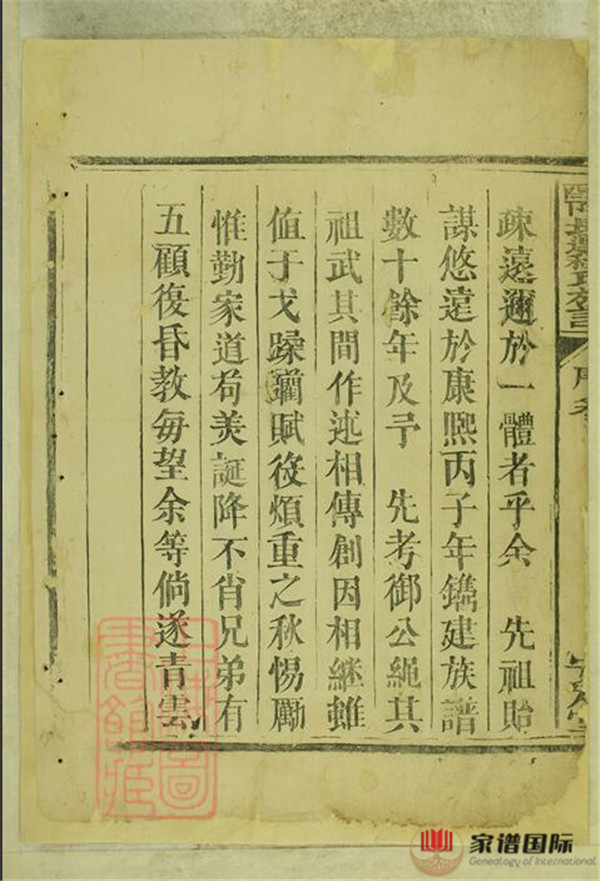 疎遠邇於一體者乎余 先祖貽
謀悠遠於康熙丙子年鐫建族譜
數十餘年及予 先考御公繩其
祖武其間作述相傳創因相繼雖
值于戈蹂躪賦役煩重之秋惕勵
惟勤家道苟美誕降不肖兄弟有
五顧復昏教每望余等倘遂青雲
家谱国际
Genealogy of International